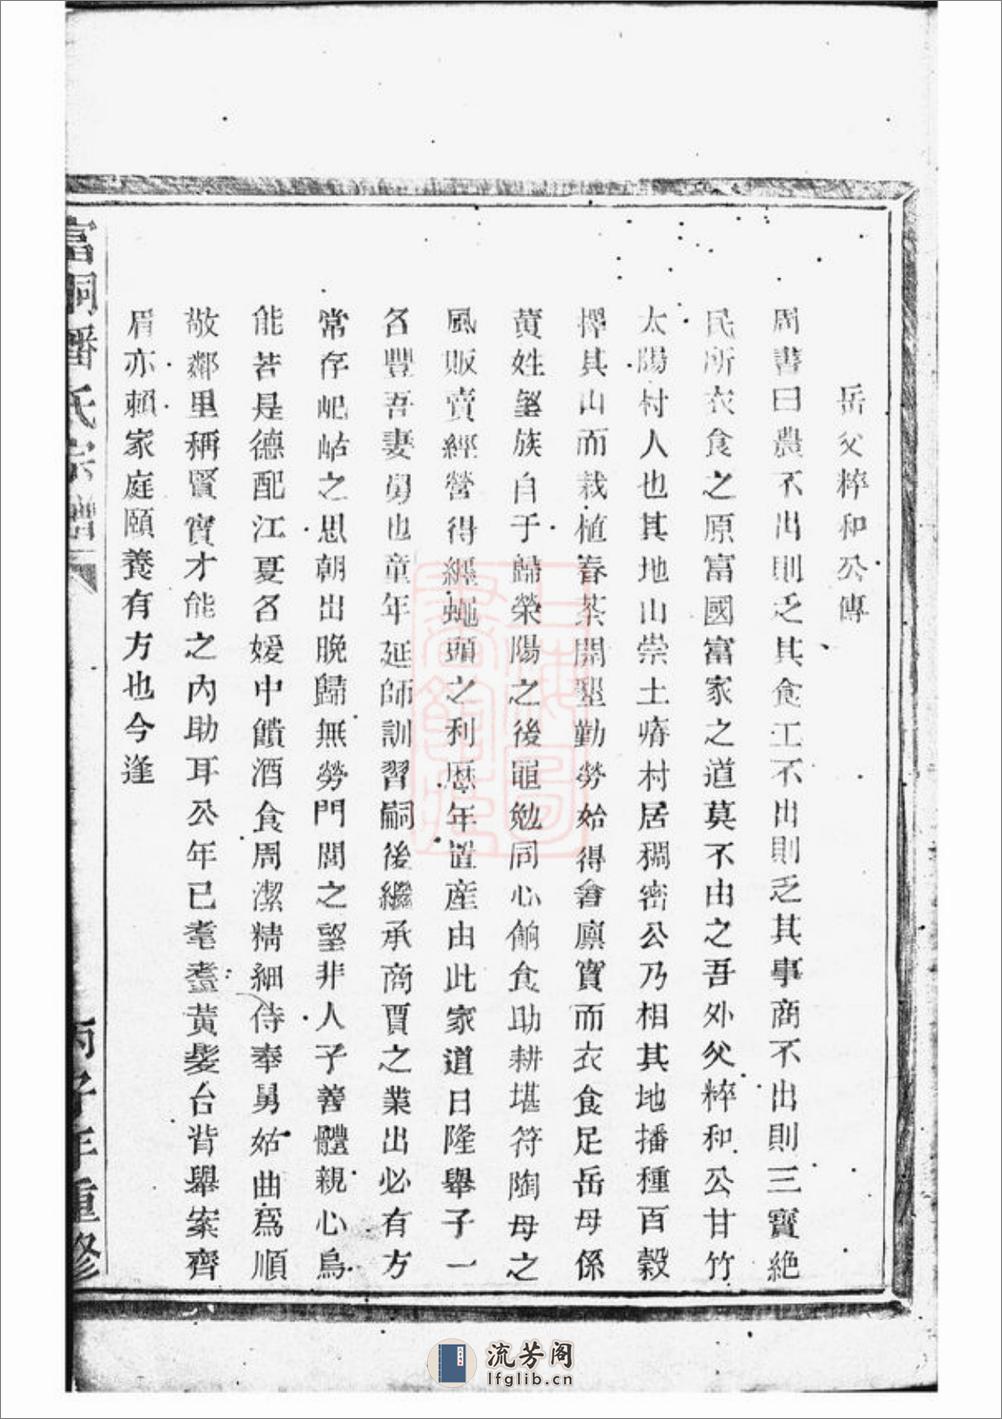 岳父粹和公傳
周書曰農不出則乏其食工不出則乏其事商不出則三寶絶
民所衣食之原富國富家之道莫不由之吾外父粹和公甘竹
太陽村人也其地山崇土瘠村居稠密公乃相其地播種百穀
擇其山而栽植春茶開墾勤勞始得倉廪實而衣食足岳母係
黄姓望族自于歸榮陽之後黽勉同心餉食助耕堪符陶母之
風販賣經營得經蠅頭之利歷年置産由此家道日隆舉子一
名豐吾妻舅也童年延師訓習嗣後繼承商賈之業出必有方
常存屺岵之思朝出晚歸無勞門閭之望非人子善體親心烏
能若是德配江夏名媛中饋酒食周潔精細侍奉舅姑曲爲順
敬鄰里稱賢實才能之内助耳公年已耄耋黄髮台背舉案齊
眉亦賴家庭頤養有方也今逢
富桐潘氏宗譜
丙子年重修
流芳阁
lfglib.cn